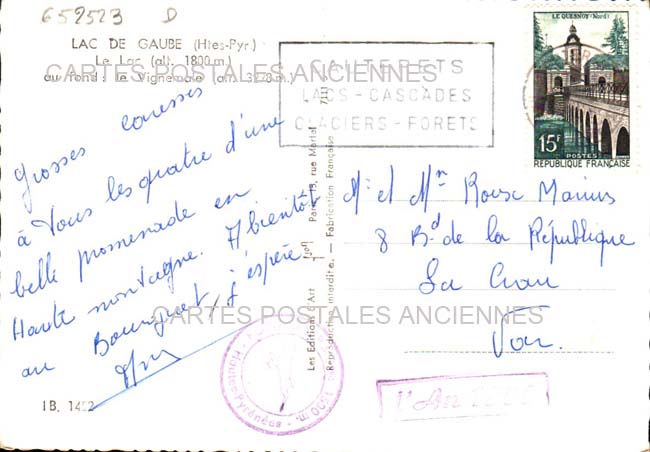 659523 D
LAC DE GAUBE (Htes-Pyr)
Le Lac (alt. 1800 m)
au fond : le Vignemale (alt. 3298 m)
CARTES POSTALES ANCIENNES
CAUTERETS
LACS - CASCADES
GLACIERS - FORETS
LE QUESNOY (Nord)
15F
POSTES
REPUBLIQUE FRANÇAISE
Grosses caresses
à tous les quatre d'une
belle promenade en
Haute montagne. A bientôt
au j'espère
Les Editions d'Art Paris-13, rue Martel 7111
Reproduction interdite. — Fabrication Française
Mr et Mme Marius
8 Bd de la République
La Crau
Var.
CARTES POSTALES ANCIENNES
Hautes-Pyrénées
l'An
1B. 1452